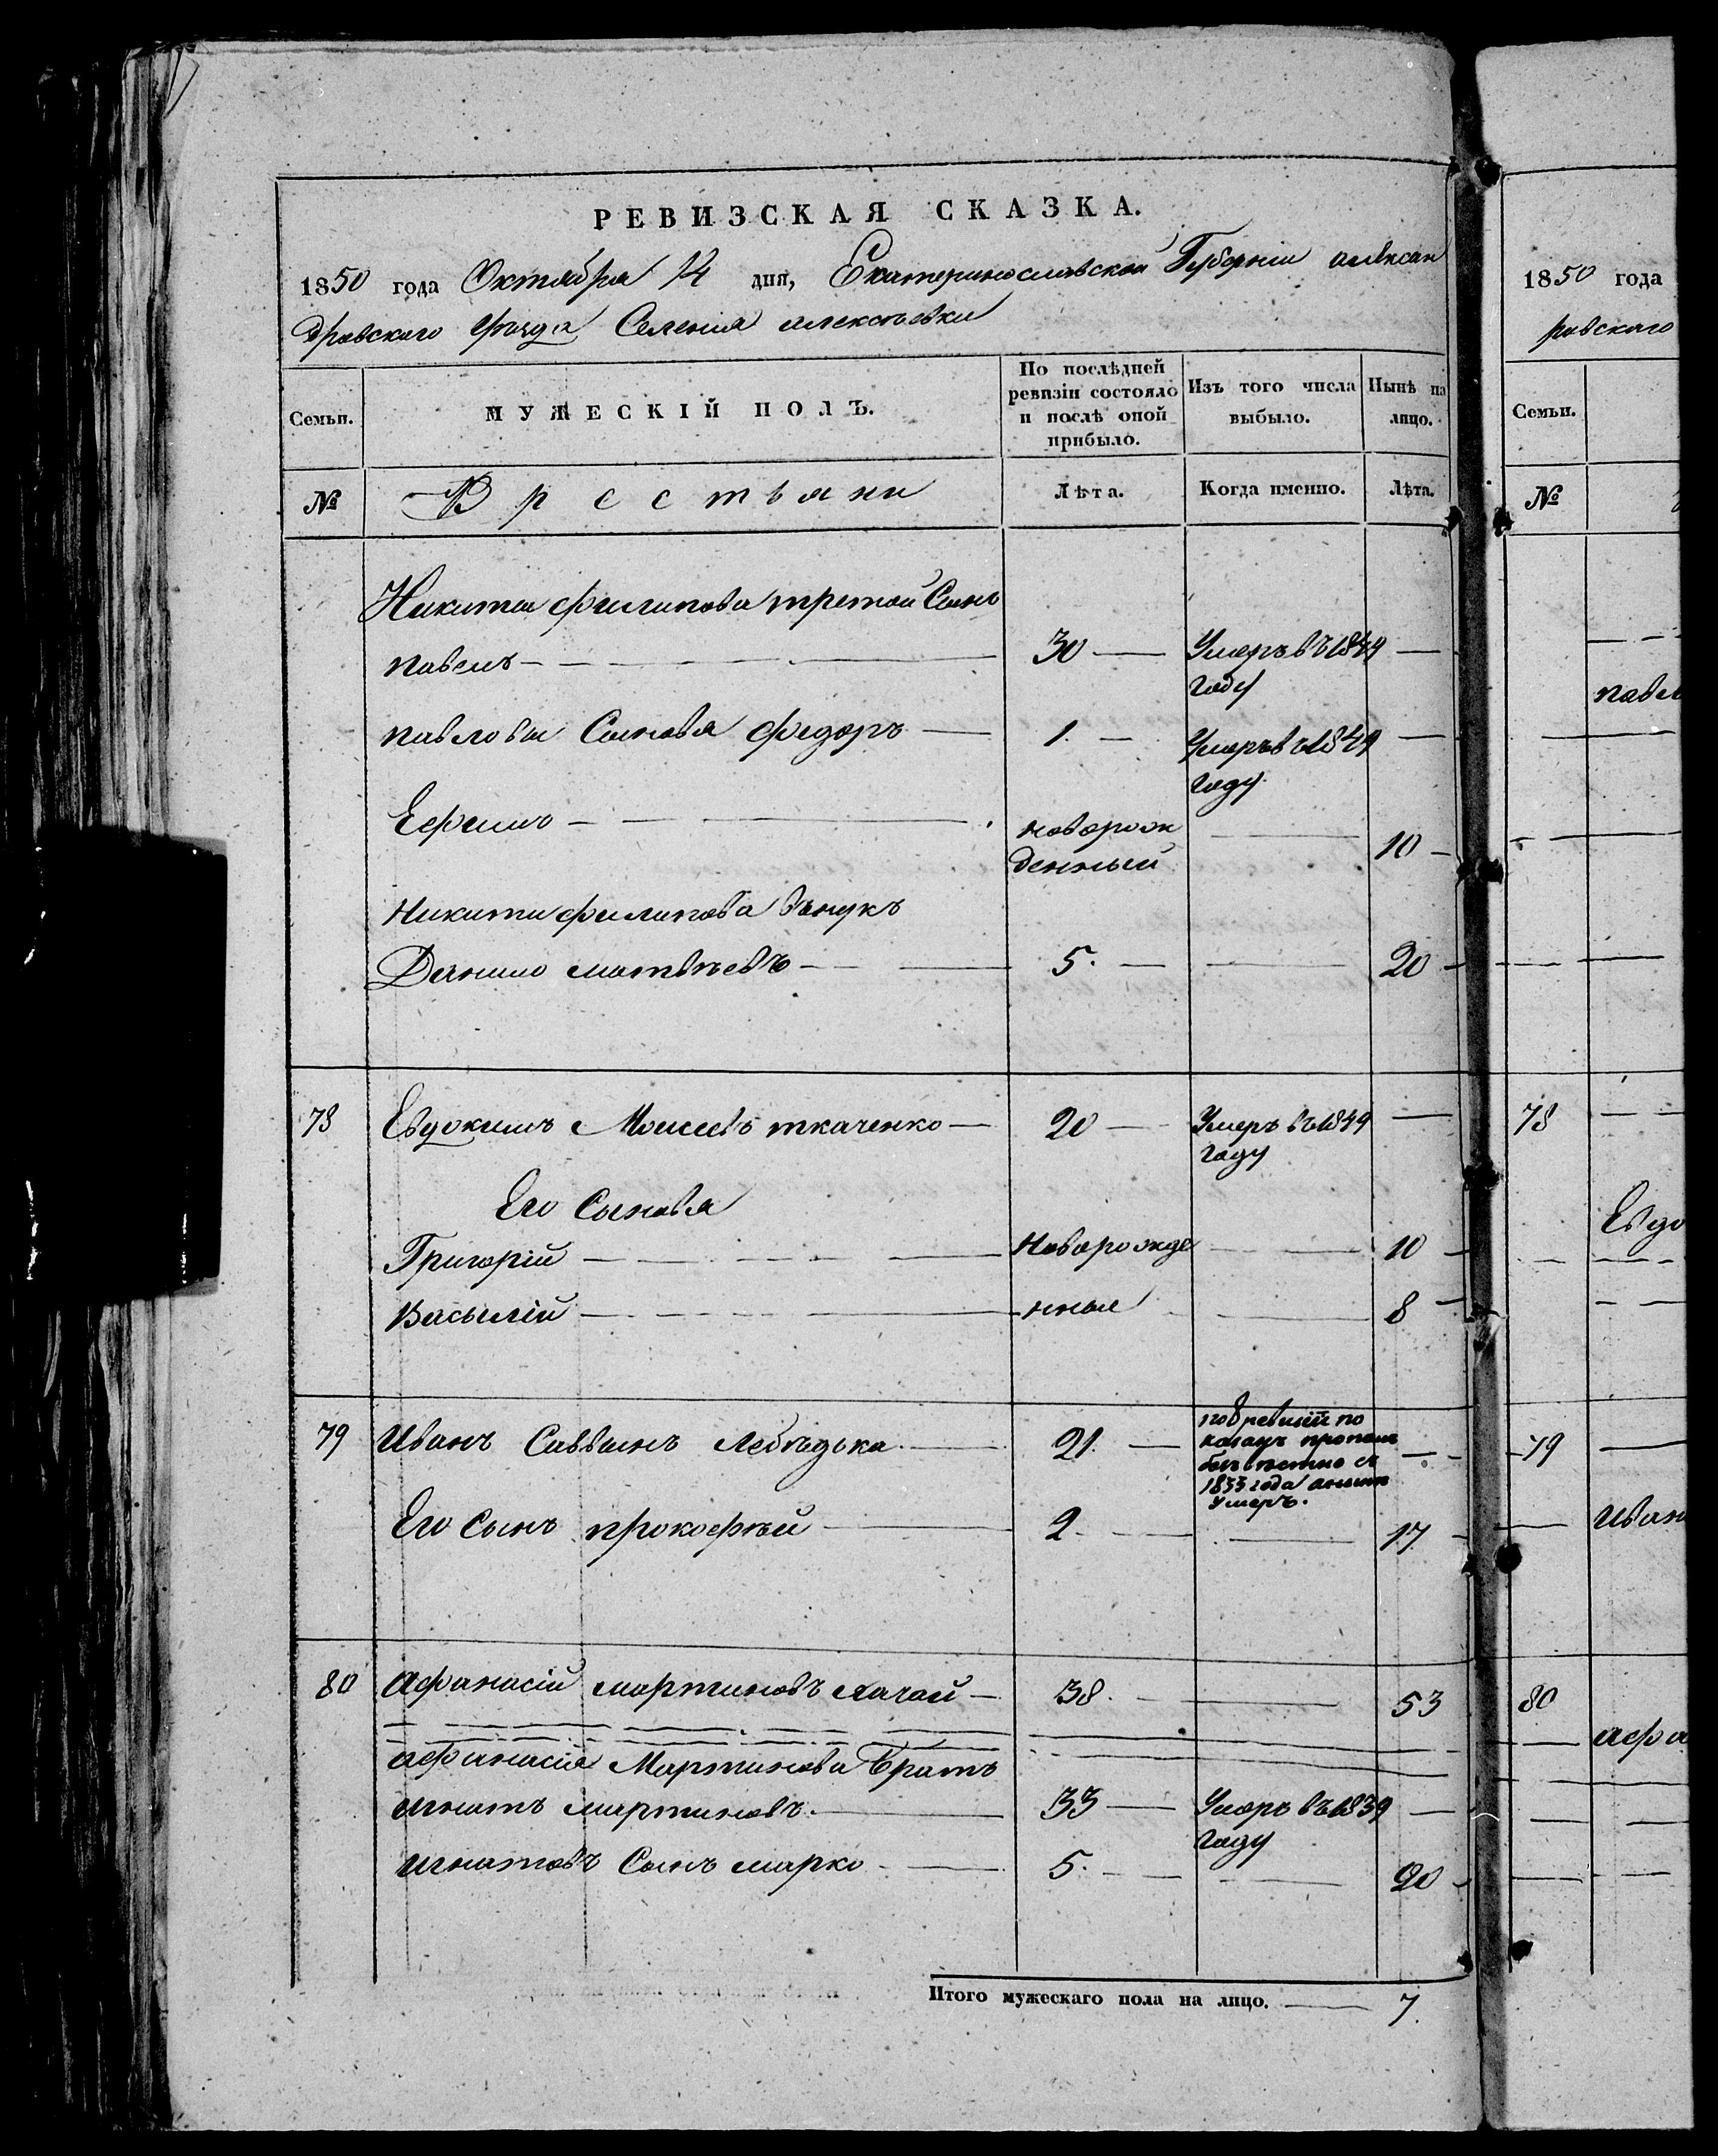 РЕВИЗСКАЯ СКАЗКА.
1850 года Октября 14 дня, Екатеринославской Губерніи алексан
дровского уѣзда Селенія алексѣевки
Семьи.
МУЖЕСКІЙ ПОЛЪ.
По послѣдней ревизіи состояло и послѣ оной прибыло.
Изъ того числа выбыло.
Нынѣ на лицо.
№
Крестьяни
Лѣта.
Когда именно.
Лѣта.
Никиты филипова третой Сынъ
павелъ 30 Умеръ въ 1849
году
павловы Сыновя федоръ 1. Умеръ въ 1849
году
Ефимъ новорож
денный 10
Никиты филипова внукъ
Данило матвѣевъ 5. 20
78 Евдокимъ Моисеевъ ткаченко 20 Умеръ въ 1849
году
Его Сыновя
Григорій Новорожде 10
Васылій нныя 8
79 Иванъ Саввинъ Лебѣдька 21. по 8 ревизіи по
казанъ пропавш
безъ вѣстно съ
1833 года
умеръ.
Его Сынъ прокофѣй 2 17
80 афанасій мартиновъ 38. 53
афанасія Мартинова Братъ
игнатъ мартиновъ. 33 Умеръ въ 1839
году
игнатовъ Сынъ марко 5. 20
Итого мужескаго пола на лицо. 7.
1850 года
ровского
Семьи.
№
павл
78
Евдо
79
Иван
80
афа